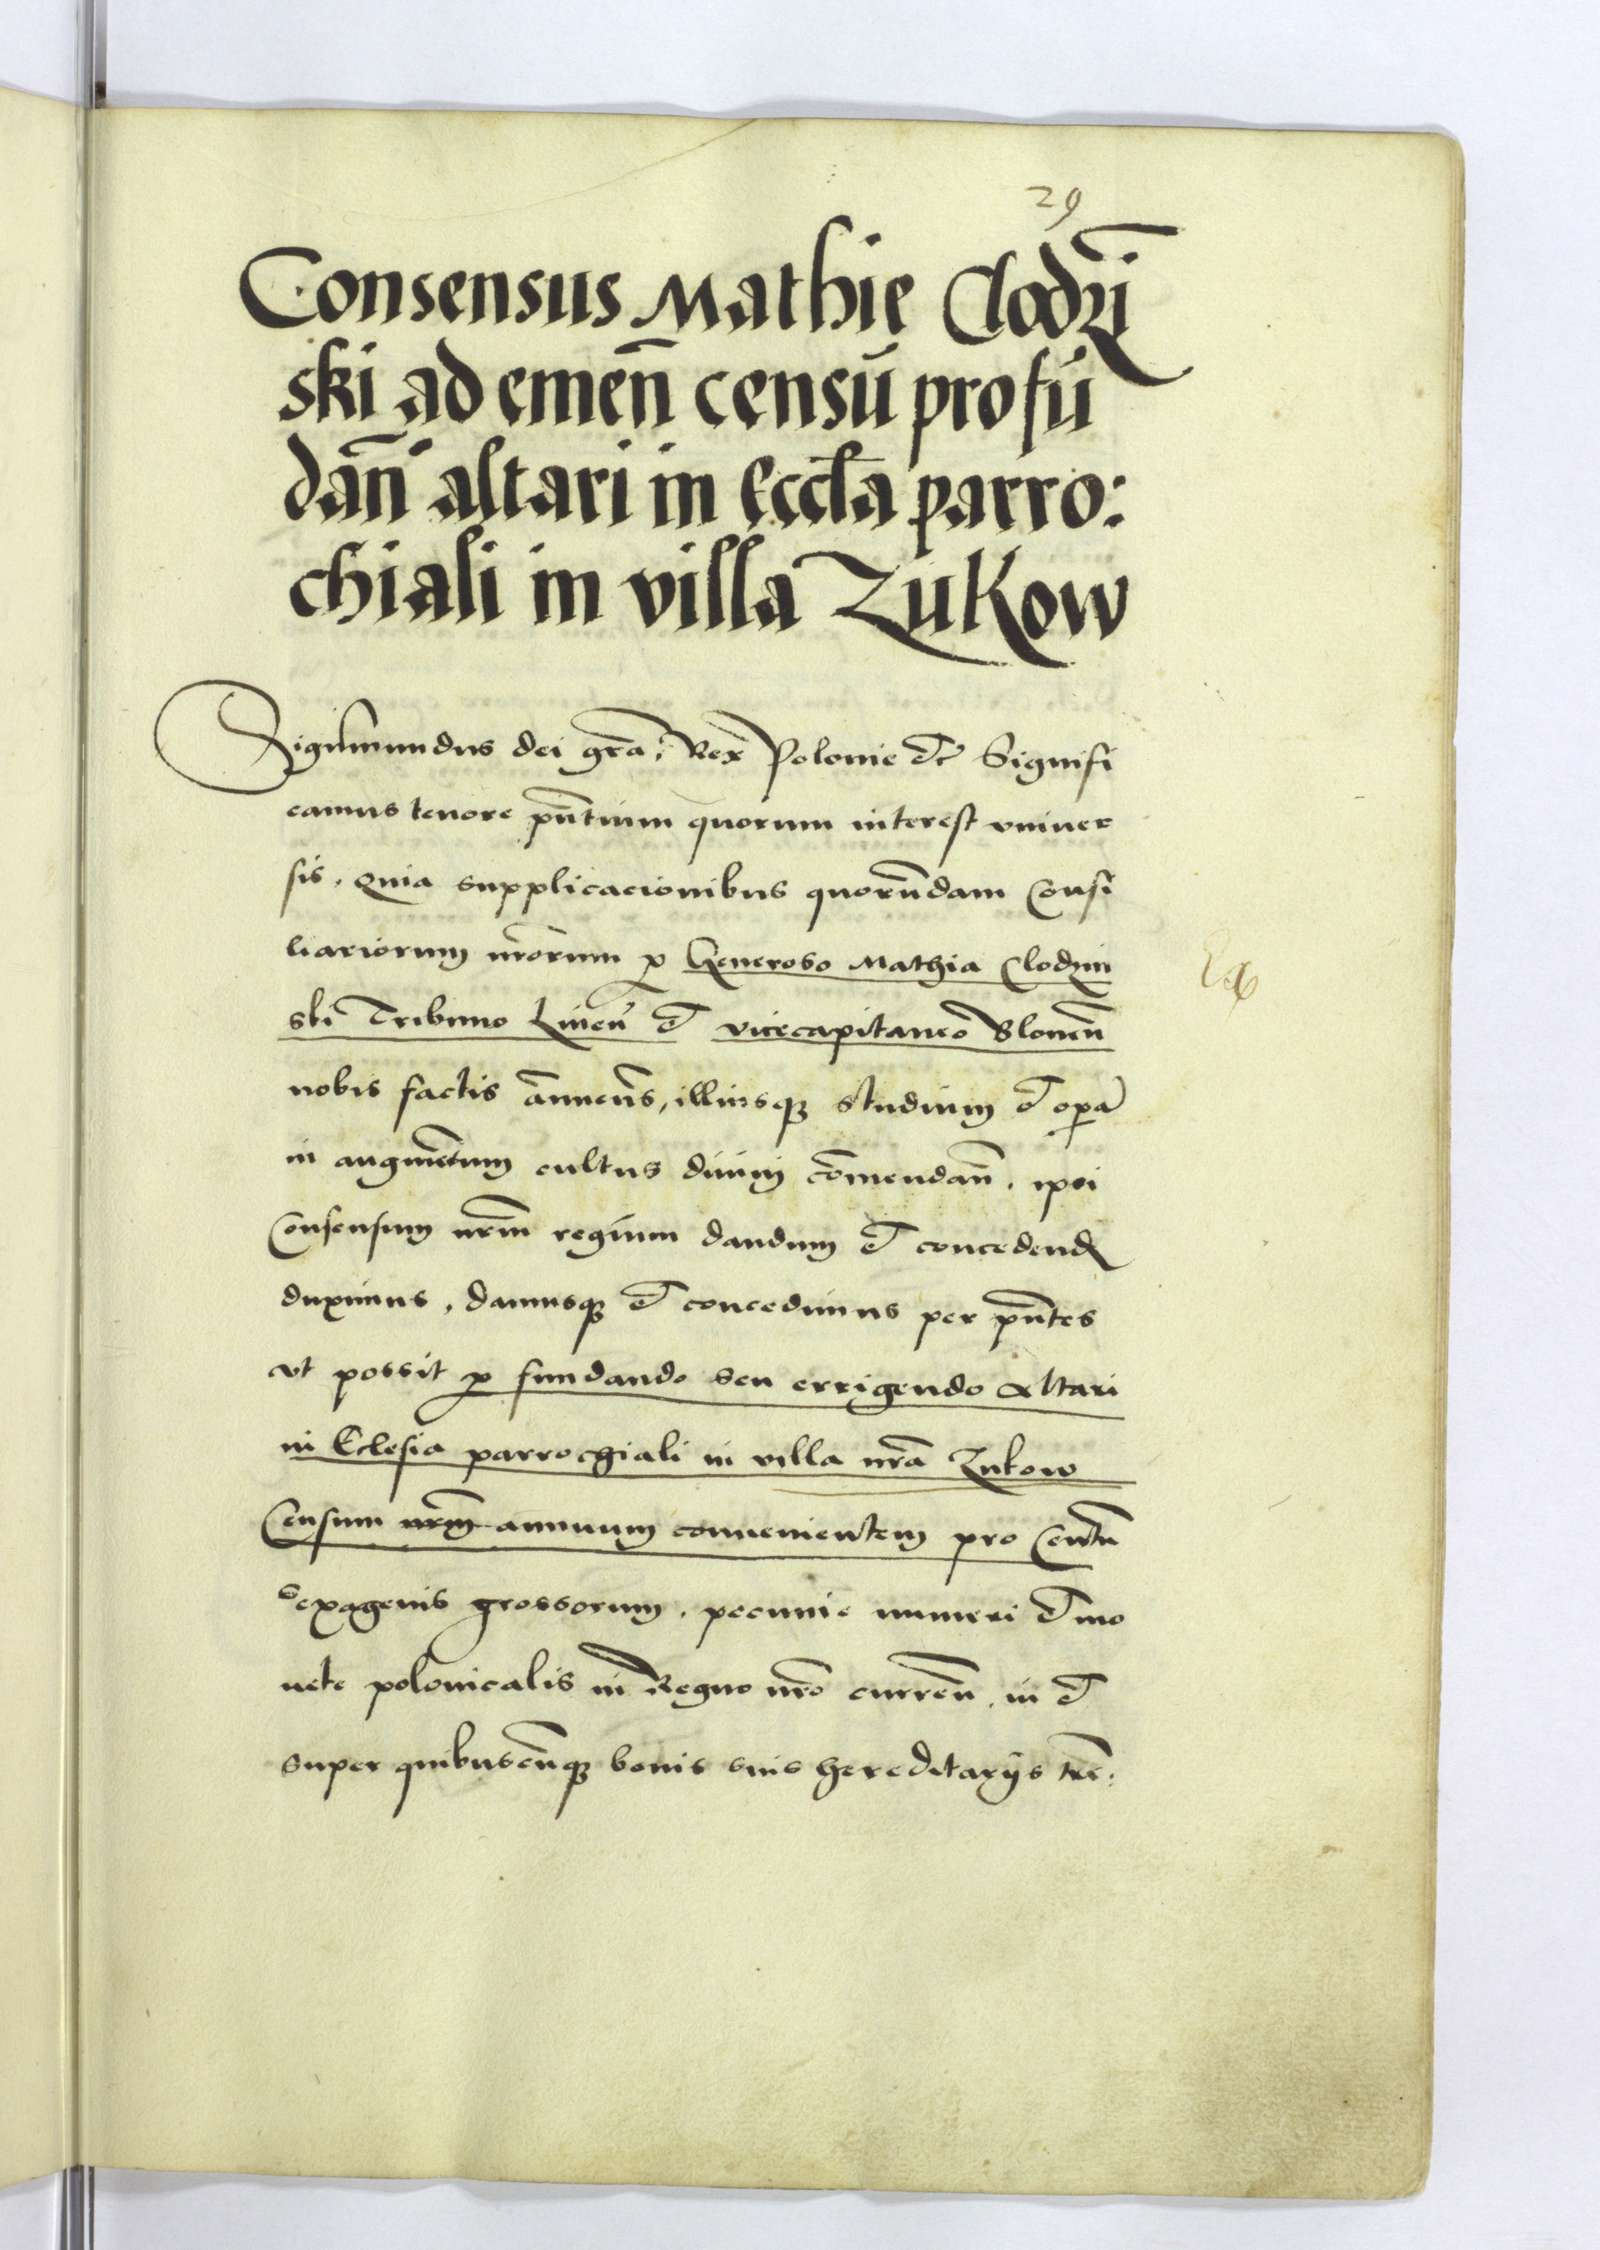 29
Consensus Mathie Clodzi
ski ad emeñ censū pro fū
dañ altari in Eccłia parro:
chiali in villa Zukow
Sigismundus dei gr̄a, Rex Polonie etc̄ Signifi
camus tenore pn̄tium quorum interest vniuer
sis. Quia supplicacionibus quorūdam Consi
liariorum nr̄orum p Generoso Mathia Clodzin
ski Tribuno Liueñ et vicecapitaneo Bloneñ
nobis factis annueñs, illiusq; studium et operā
in augmētum cultus diuinj com̄endañ. ipsi
Consensum nr̄m regium dandum et concedend
duximus, damusq; et concedimus per pn̄tes
vt possit p fundando seu errigendo Altari
in Eclesia parrochiali in villa nr̄a Zukow
Censum nr̄m annuum conuenientem pro Centū
sexagenis grossorum. pecunie numeri et mo
nete polonicalis in Regno nr̄o curreñ. in et
super quibuscūq; bonis suis hereditarijs trr̄: